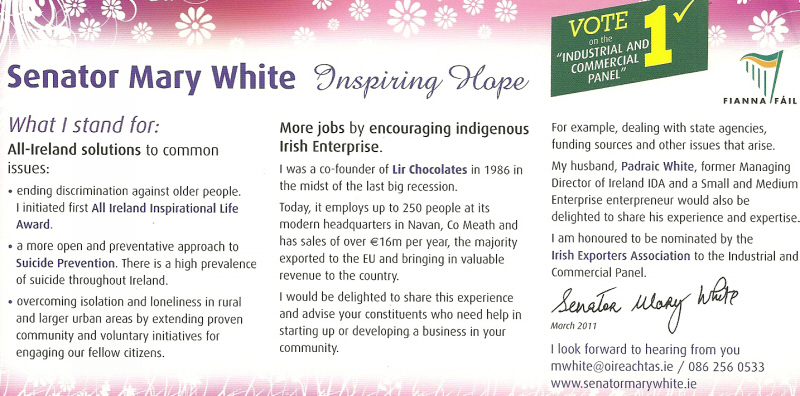 Senator Mary White Inspiring Hope
VOTE 1
on the
"INDUSTRIAL AND
COMMERCIAL
PANEL"
FIANNA FÁIL
What I stand for:
All-Ireland solutions to common
issues:
• ending discrimination against older people.
I initiated first All Ireland Inspirational Life
Award.
• a more open and preventative approach to
Suicide Prevention. There is a high prevalence
of suicide throughout Ireland.
• overcoming isolation and loneliness in rural
and larger urban areas by extending proven
community and voluntary initiatives for
engaging our fellow citizens.
More jobs by encouraging indigenous
Irish Enterprise.
I was a co-founder of Lir Chocolates in 1986 in
the midst of the last big recession.
Today, it employs up to 250 people at its
modern headquarters in Navan, Co Meath and
has sales of over €16m per year, the majority
exported to the EU and bringing in valuable
revenue to the country.
I would be delighted to share this experience
and advise your constituents who need help in
starting up or developing a business in your
community.
For example, dealing with state agencies,
funding sources and other issues that arise.
My husband, Padraic White, former Managing
Director of Ireland IDA and a Small and Medium
Enterprise enterpreneur would also be
delighted to share his experience and expertise.
I am honoured to be nominated by the
Irish Exporters Association to the Industrial and
Commercial Panel.
Senator Mary White
March 2011
I look forward to hearing from you
mwhite@oireachtas.ie / 086 256 0533
www.senatormarywhite.ie